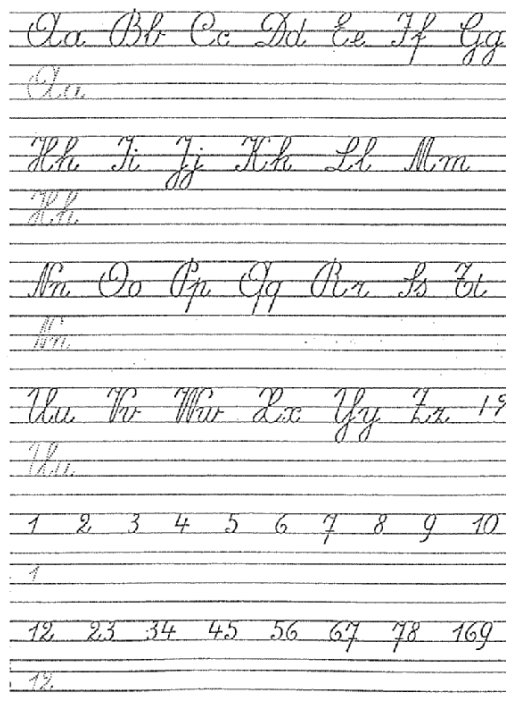 Aa Bb Cc Dd Ee Ff Gg
Aa
Hh Ii Jj Kk Ll Mm
Hh
Nn Oo Pp Qq Rr Ss Tt
Nn
Uu Vv Ww Xx Yy Zz
Uu
1 2 3 4 5 6 7 8 9 10
1
12 23 34 45 56 67 78 169
12